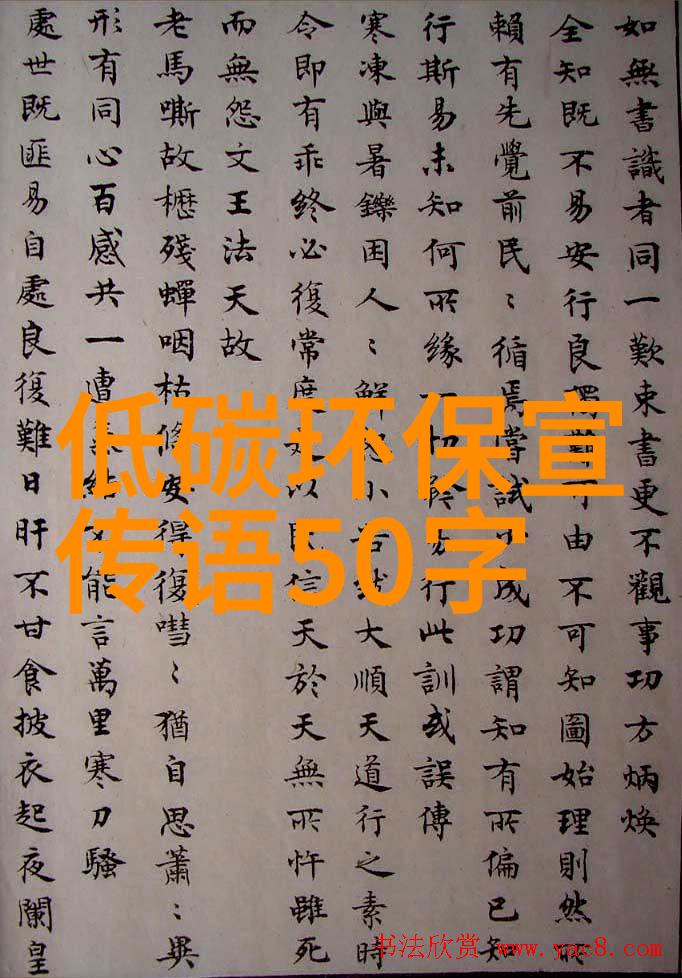 如無書識者同一歎束書更不觀事功方炳煥
全知既不易安行良可由不可知圖始理則然所
賴有先覺前民〻循焉嘗試成功謂知有所偏已知
行斯易未知何所緣切行此訓或誤傳
寒凍與暑鑠困人〻鮮小大順天道行之素時
令即有乖終必復常度以信天於天無所忤雖死
而無怨文王法天故
老馬嘶故櫪殘蟬咽枯條得復嘒〻猶自思蕭〻異
形有同心百感共一遭能言萬里寒刀騷
處世既匪易自處良復難日旰不甘食披衣起夜闌皇
低碳环保宣
传语50字
书法欣赏 www.yac8.com